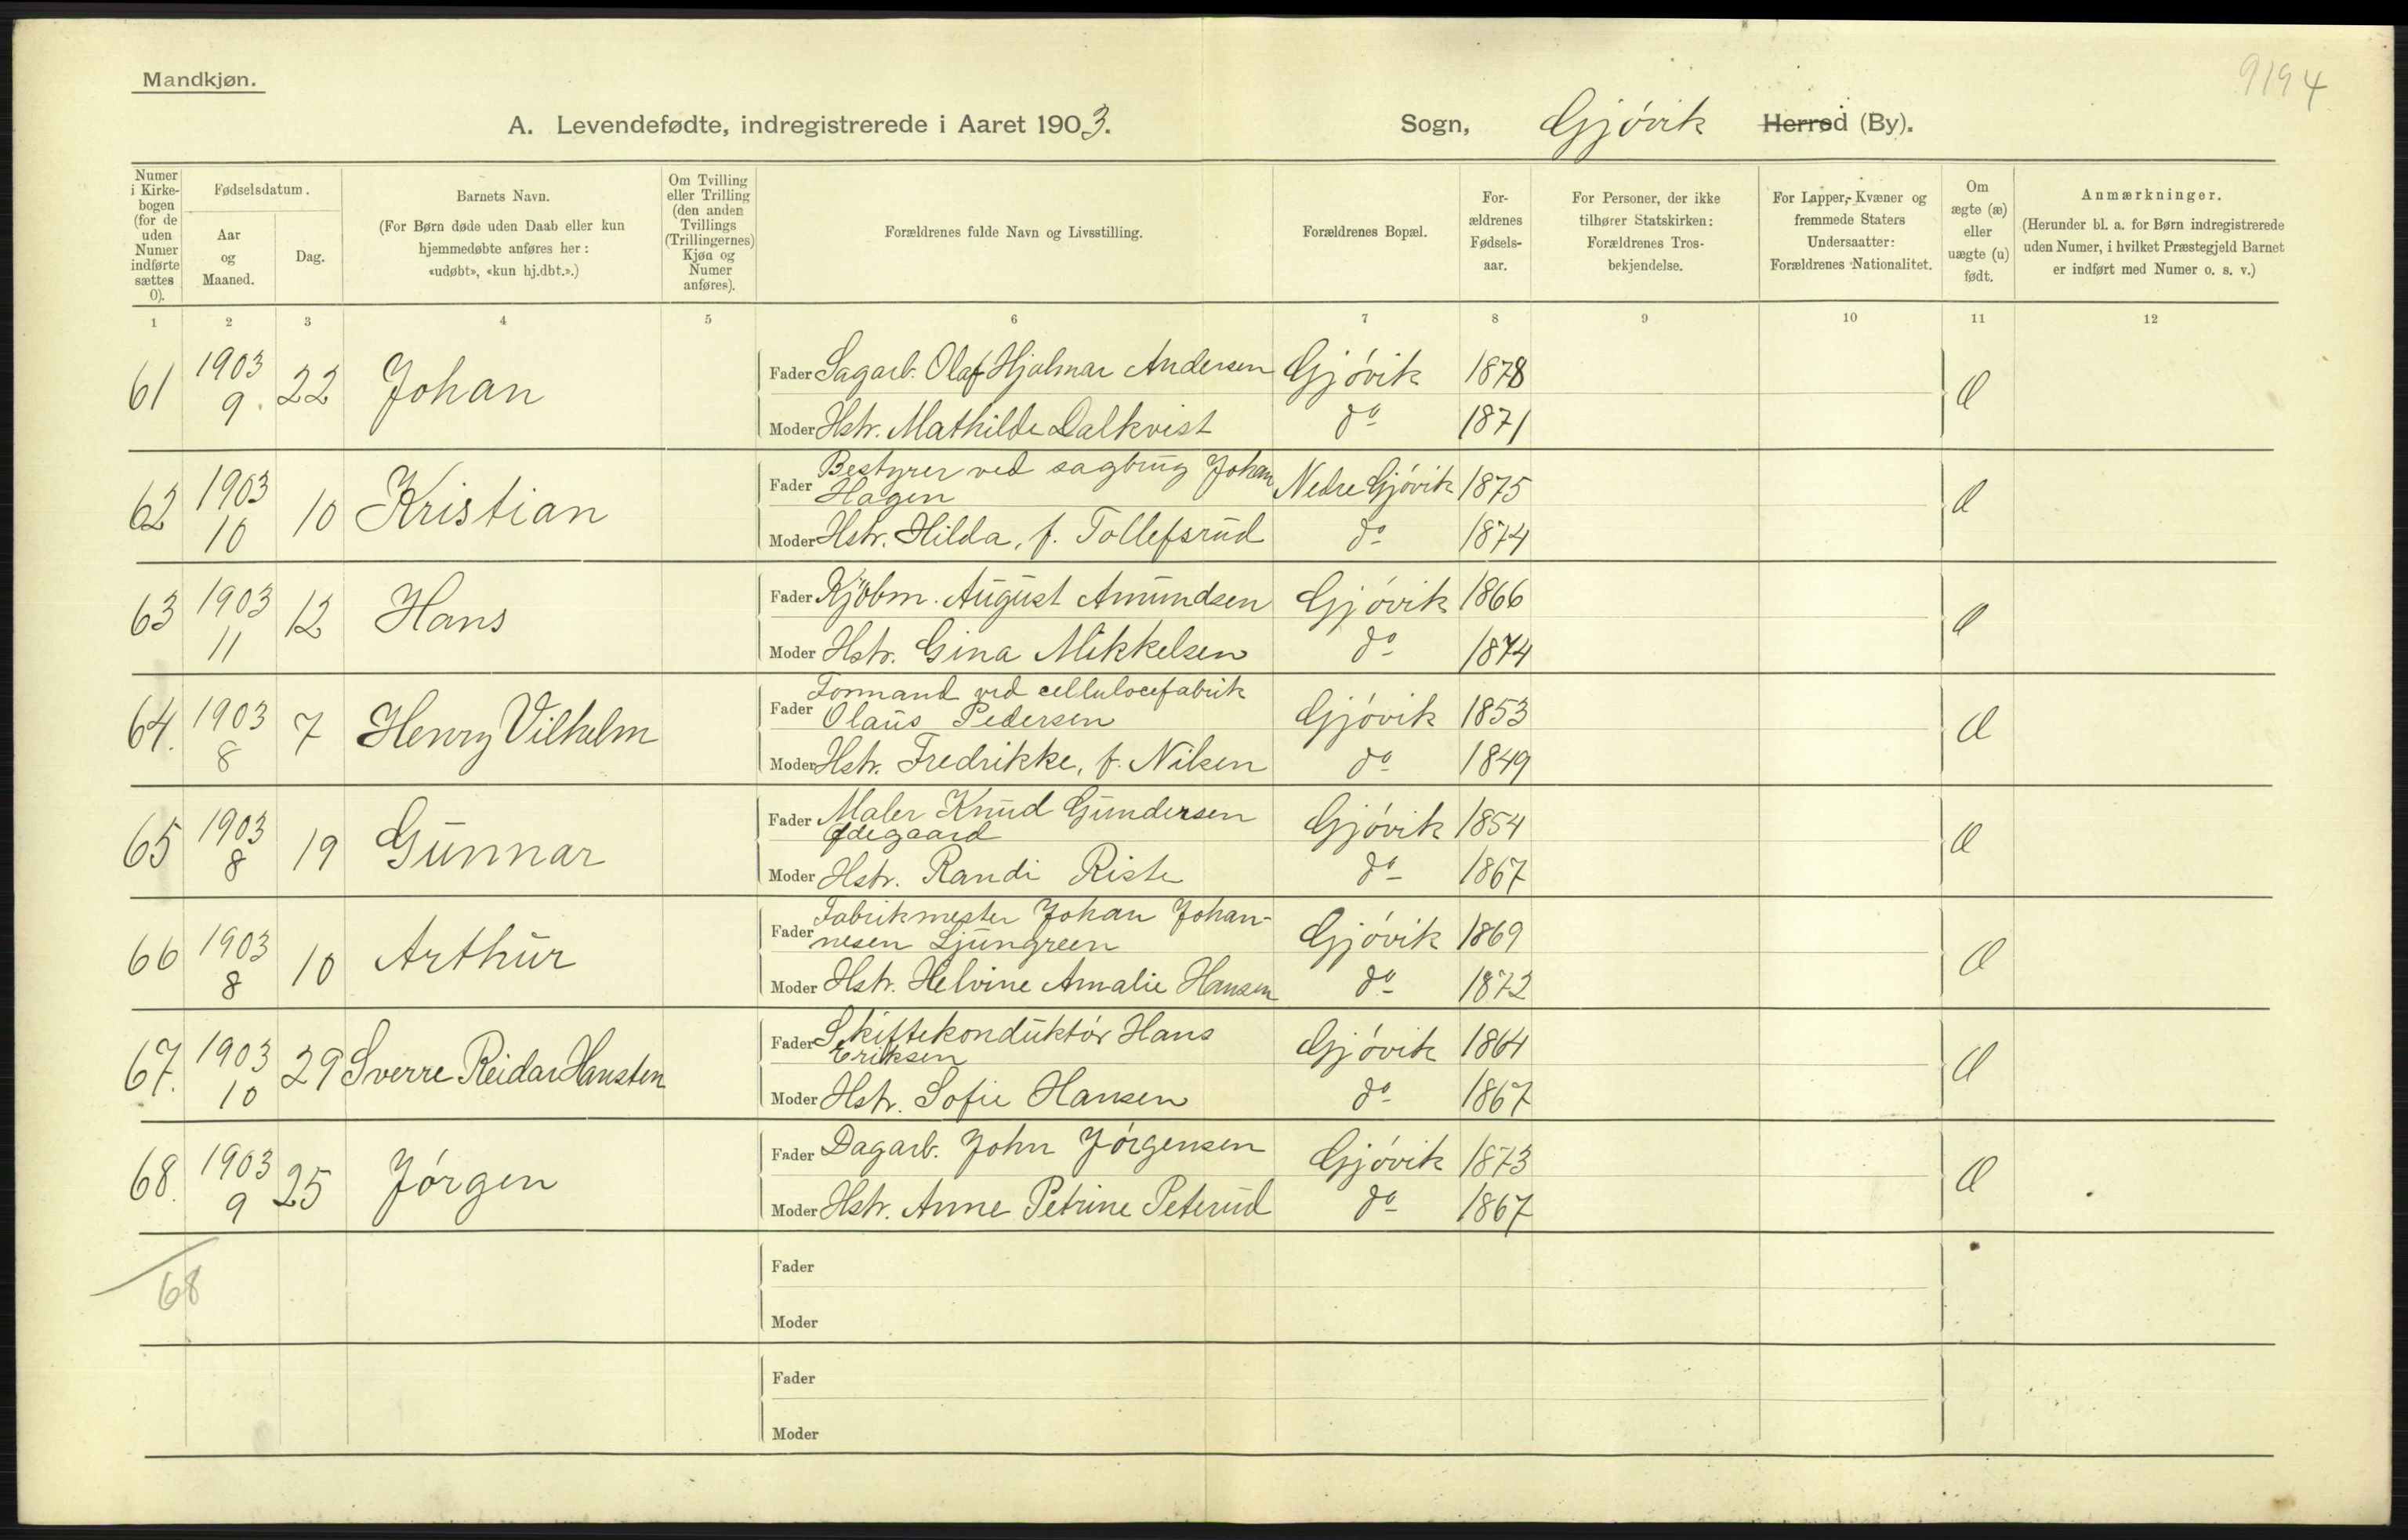 Mandkjøn.
9194
A. Levendefødte, indregistrerede i Aaret 1903. Sogn, Gjövik Herred (By).
Numer i Kirkebogen (for de uden Numer indførte sættes 0).
Fødselsdatum.
Aar og Maaned.
Dag.
Barnets Navn.
(For Børn døde uden Daab eller kun hjemmedøbte anføres her: «udøbt», «kun hj.dbt.».)
Om Tvilling eller Trilling (den anden Tvillings (Trillingernes) Kjøn og Numer anføres).
Forældrenes fulde Navn og Livsstilling.
Forældrenes Bopæl.
Forældrenes Fødselsaar.
For Personer, der ikke tilhører Statskirken: Forældrenes Trosbekjendelse.
For Lapper, Kvæner og fremmede Staters Undersaatter: Forældrenes Nationalitet.
Om ægte (æ) eller uægte (u) født.
Anmærkninger.
(Herunder bl. a. for Børn indregistrerede uden Numer, i hvilket Præstegjeld Barnet er indført med Numer o. s. v.)
1 2 3 4 5 6 7 8 9 10 11 12
61 1903 9. 22 Johan Fader Sagarb. Olaf Hjalmar Andersen Gjövik 1878 Æ
Moder Hstr. Mathilde Dalkvist do 1871
62 1903 10 10 Kristian Fader Bestyrer ved sagbrug Johan
Hagen Nedre Gjövik 1875 Æ
Moder Hstr. Hilda, f. Tollefsrud do 1874
63 1903 11 12 Hans Fader Kjöbm. August Amundsen Gjövik 1866 Æ
Moder Hstr. Gina Mikkelsen do 1874
64. 1903 8 7 Henry Vilhelm Fader Formand ved cellulocefabrik
Olaus Pedersen Gjövik 1853 Æ
Moder Hstr. Fredrikke, f. Nilsen do 1849
65 1903 8 19 Gunnar Fader Maler Knud Gundersen
Ødegaard Gjövik 1854 Æ
Moder Hstr. Randi Riste do 1867
66 1903 8 10 Arthur Fader Fabrikmester Johan Johan-
nesen Ljungreen Gjövik 1869 Æ
Moder Hstr. Helvine Amalie Hansen do 1872
67. 1903 10 29 Sverre Reidar Hansten Fader Skiftekonduktör Hans
Eriksen Gjövik 1864 Æ
Moder Hstr. Sofie Hansen do 1867
68. 1903 9 25 Jörgen Fader Dagarb. John Jörgensen Gjövik 1873 Æ
Moder Hstr. Anne Petrine Peterud do 1867
68
Fader
Moder
Fader
Moder